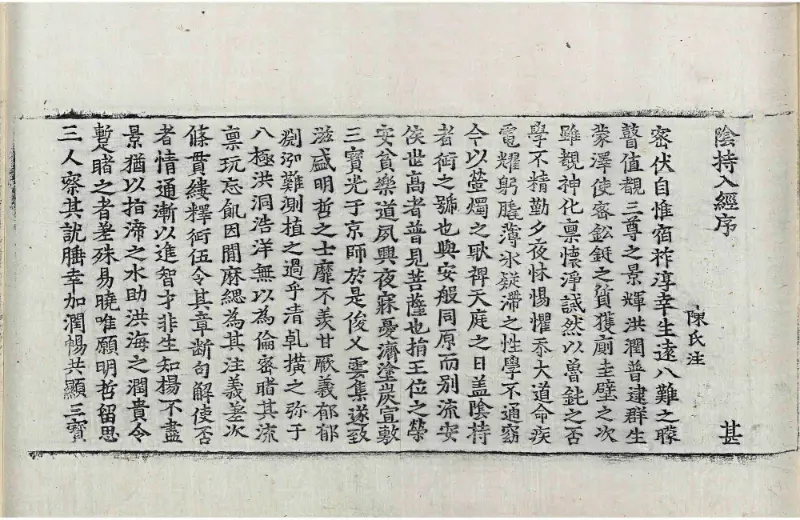 陰持入經序
陳氏注
甚
密伏自惟宿祚淳幸生遠八難之矇
瞽值覩三尊之景輝洪潤普逮群生
蒙澤使審鈆鋌之質獲廁圭璧之次
雖覩神化稟懷淨誠然以魯鈍之否
學不精勤夕夜怵惕懼忝大道命疾
電耀躬腄薄氷疑滯之性學不通竊
今以螢燭之耿裨天庭之日盖陰持
者術之號也與安般同原而別流安
侯世高者普見菩薩也捐王位之榮
安貧樂道夙興夜寐憂濟塗炭宣敷
三寶光于京師於是俊乂雲集遂致
滋盛明哲之士靡不羡甘厥義郁郁
淵泓難測植之過乎清乹横之弥于
八極洪洞浩洋無以為倫審睹其流
稟玩忘飢因間麻緦為其注義差次
條貫縷釋行伍令其章断句解使否
者情通漸以進智才非生知揚不盡
景猶以指渧之水助洪海之潤貴令
蹔睹之者差殊易曉唯願明哲留思
三人察其訧腄幸加潤暢共顯三寶